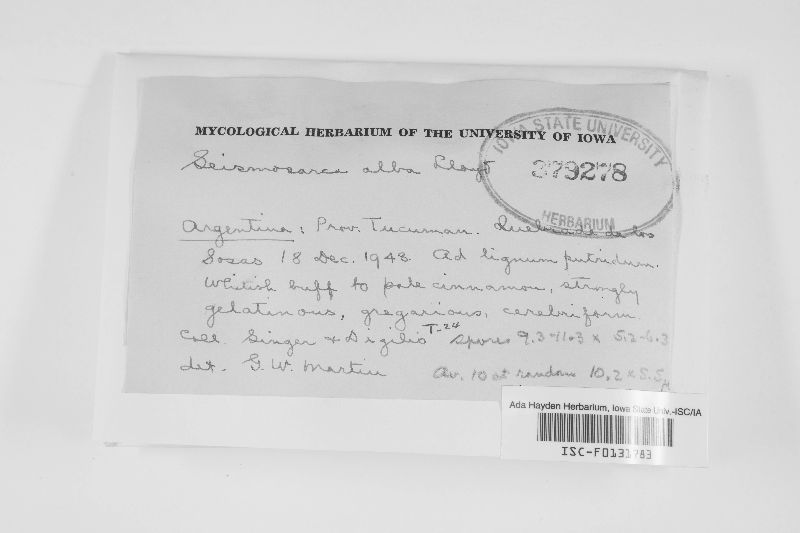 MYCOLOGICAL HERBARIUM OF THE UNIVERSITY OF IOWA
IOWA STATE UNIVERSITY
379278
HERBARIUM
Seismosarca alba Lloyd
Argentina: Prov. Tucuman. Quebrada de los
Sosas 18 Dec. 1948. Ad lignum putridum.
Whitish buff to pale cinnamon, strongly
gelatinous, gregarious, cerebriform.
Coll. Singer & Digilio T-24 Spores 9.3-11.3 x 5.2-6.3
det. G. W. Martin Av. 10 at random 10.2 x 5.5 µ
Ada Hayden Herbarium, Iowa State Univ.-ISC/IA
ISC-F0131783